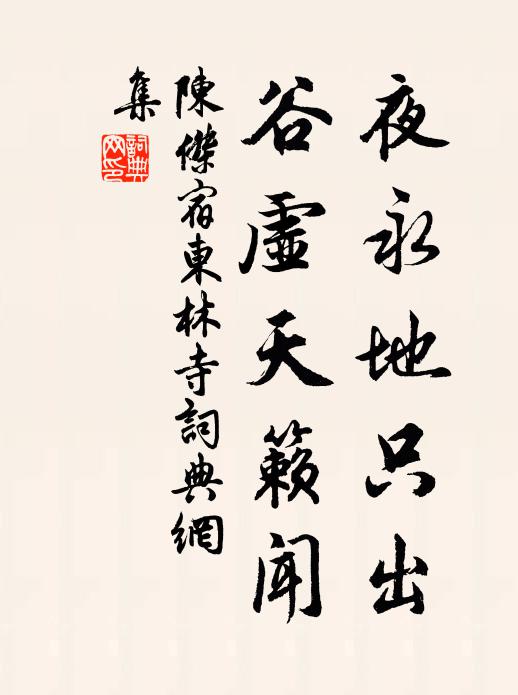 夜永地只出
谷虛天籟聞
陳傑宿東林寺詞典網
集
詞典網印